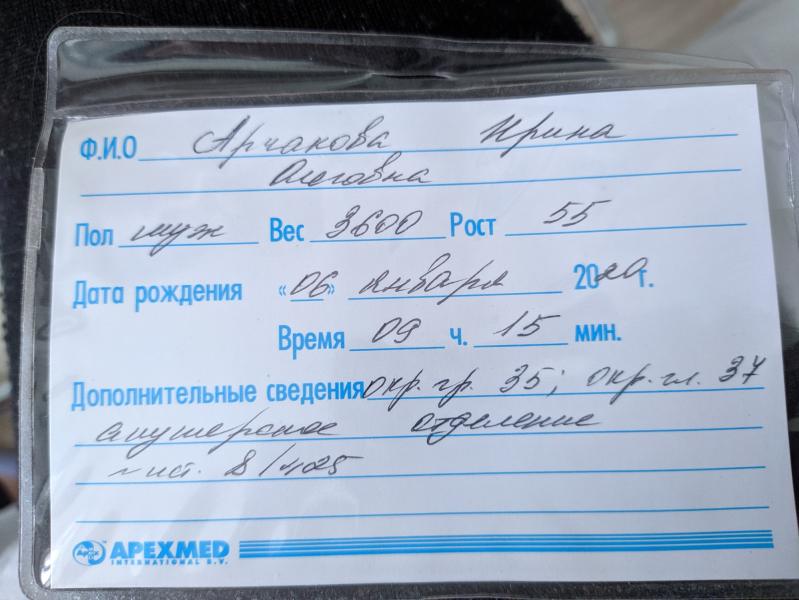 Ф.И.О Арчакова Ирина
Олеговна
Пол муж Вес 3600 Рост 55
Дата рождения «06» января 2020 г.
Время 09 ч. 15 мин.
Дополнительные сведения окр. гр. 35; окр. гл. 37
акушерское отделение
ист. 8/425
APEXMED
INTERNATIONAL B.V.